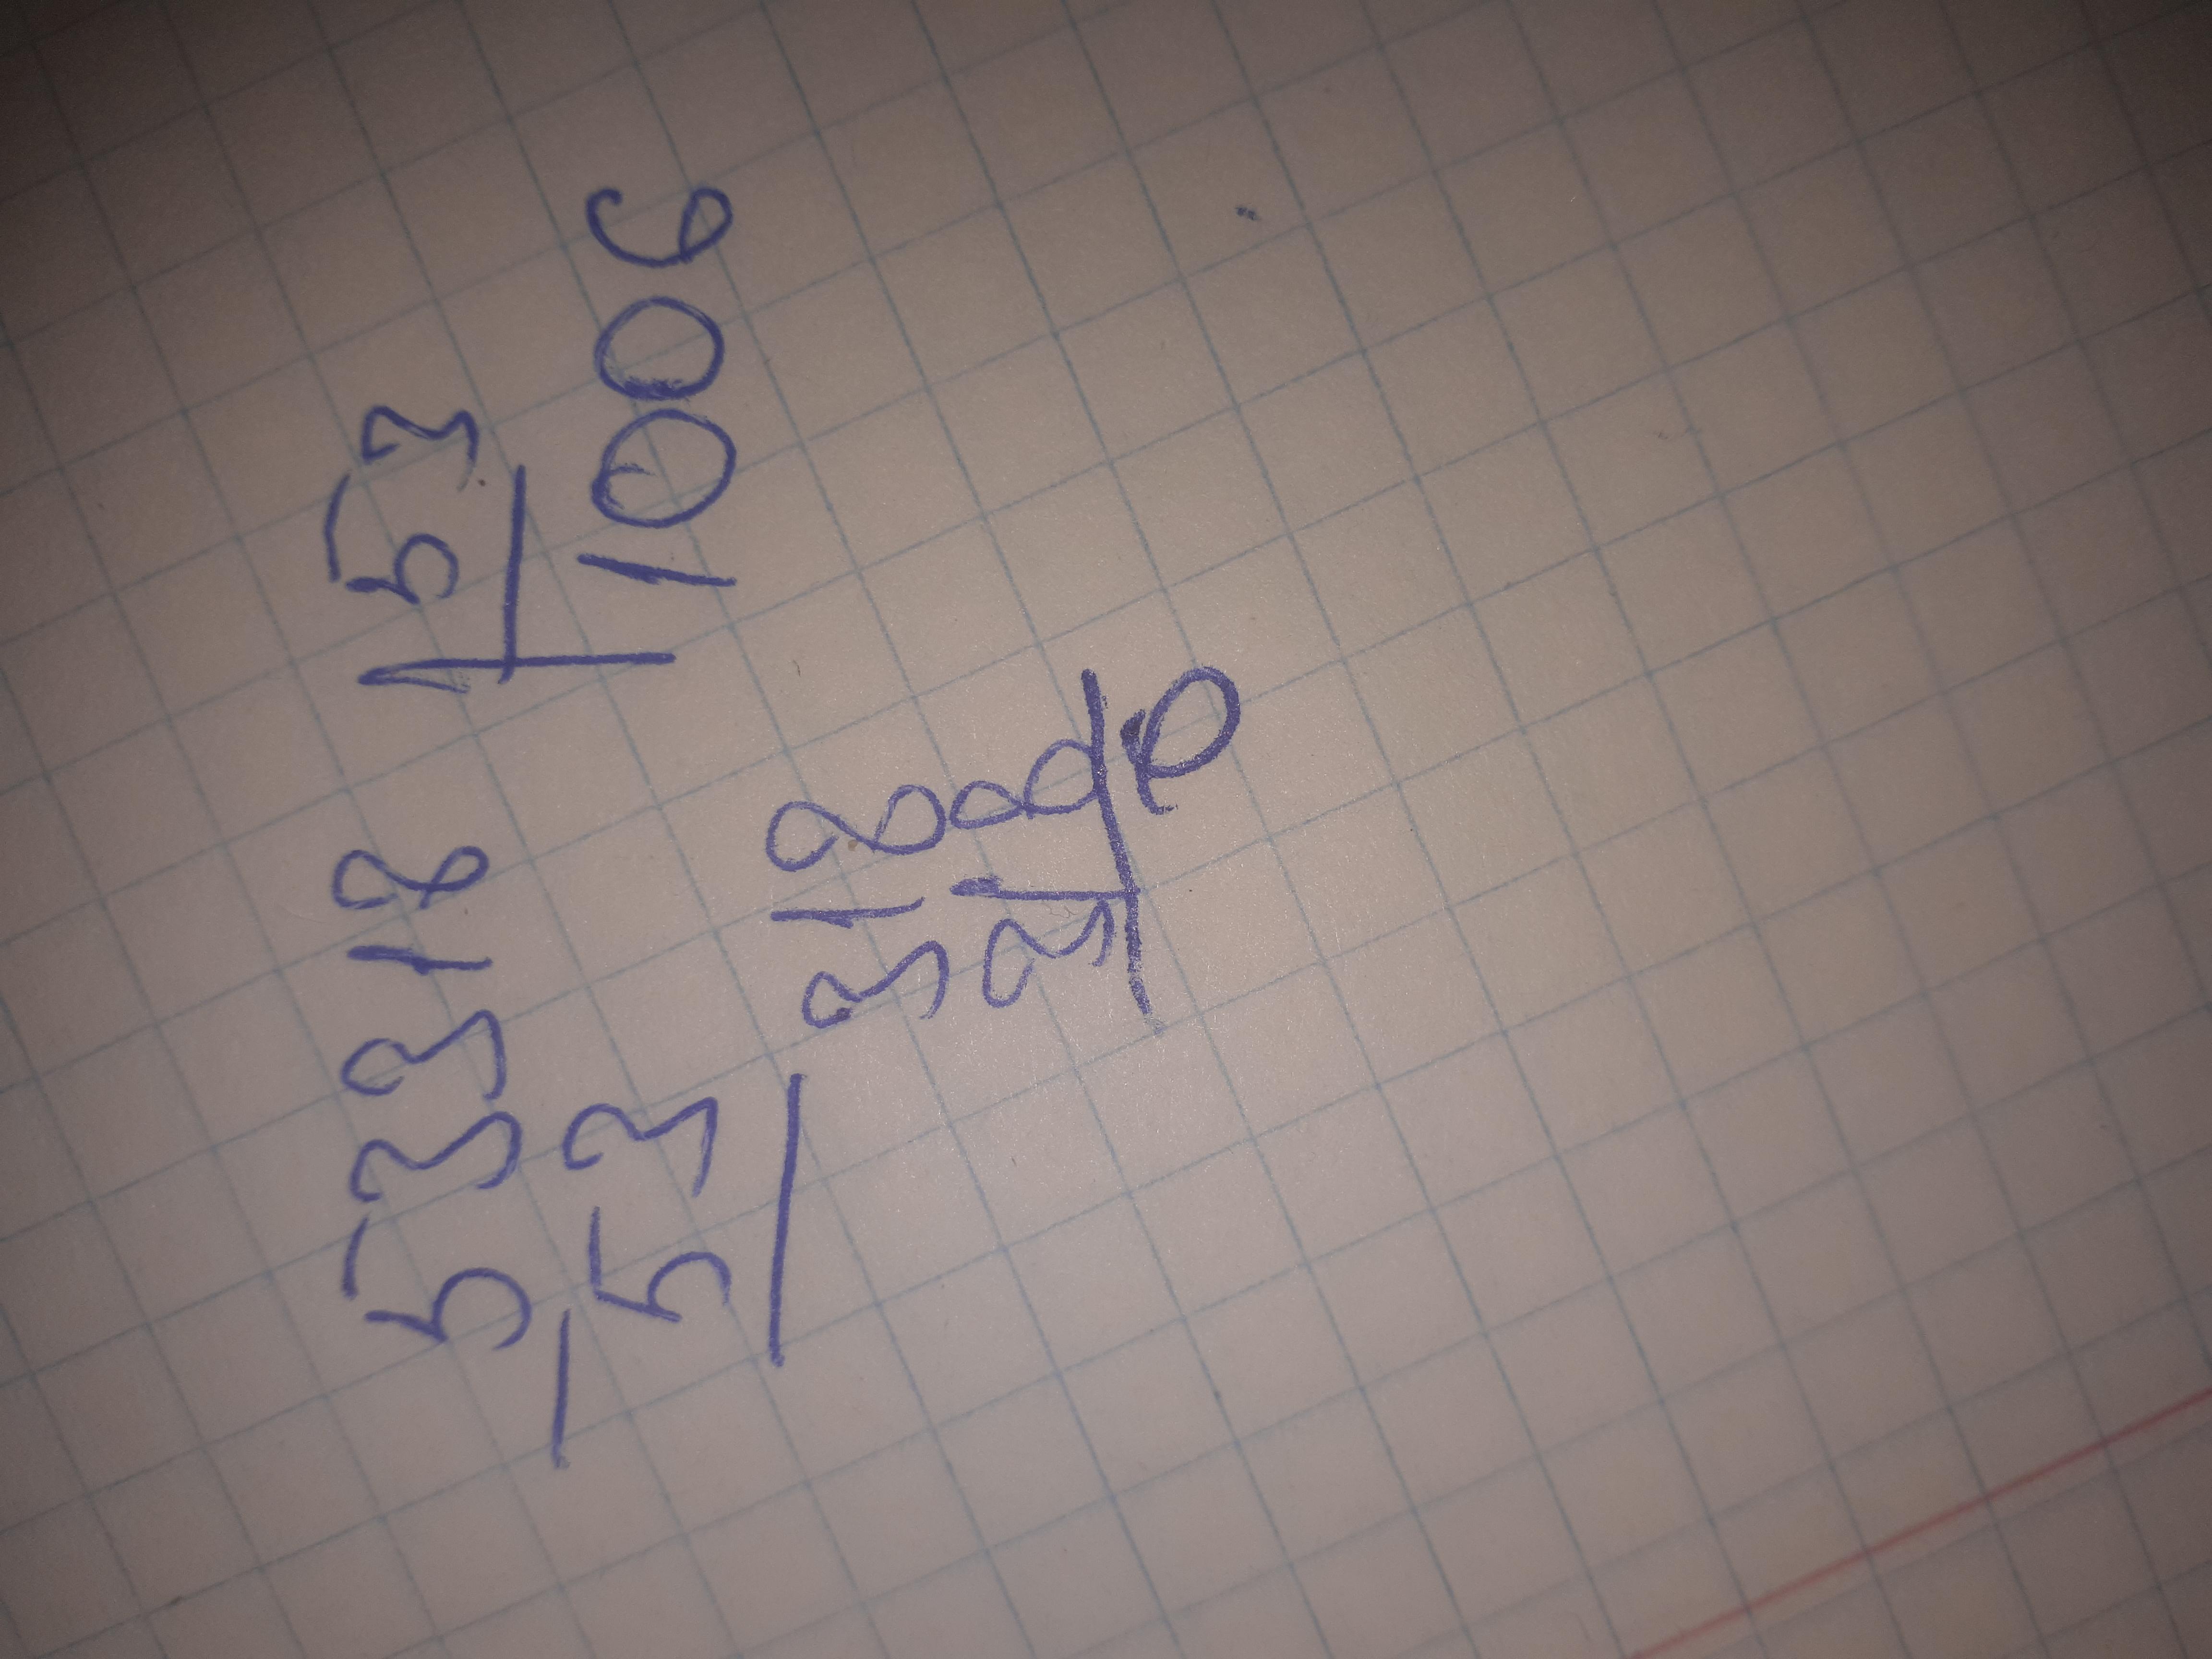 53318 53
53 1006
318
318
0